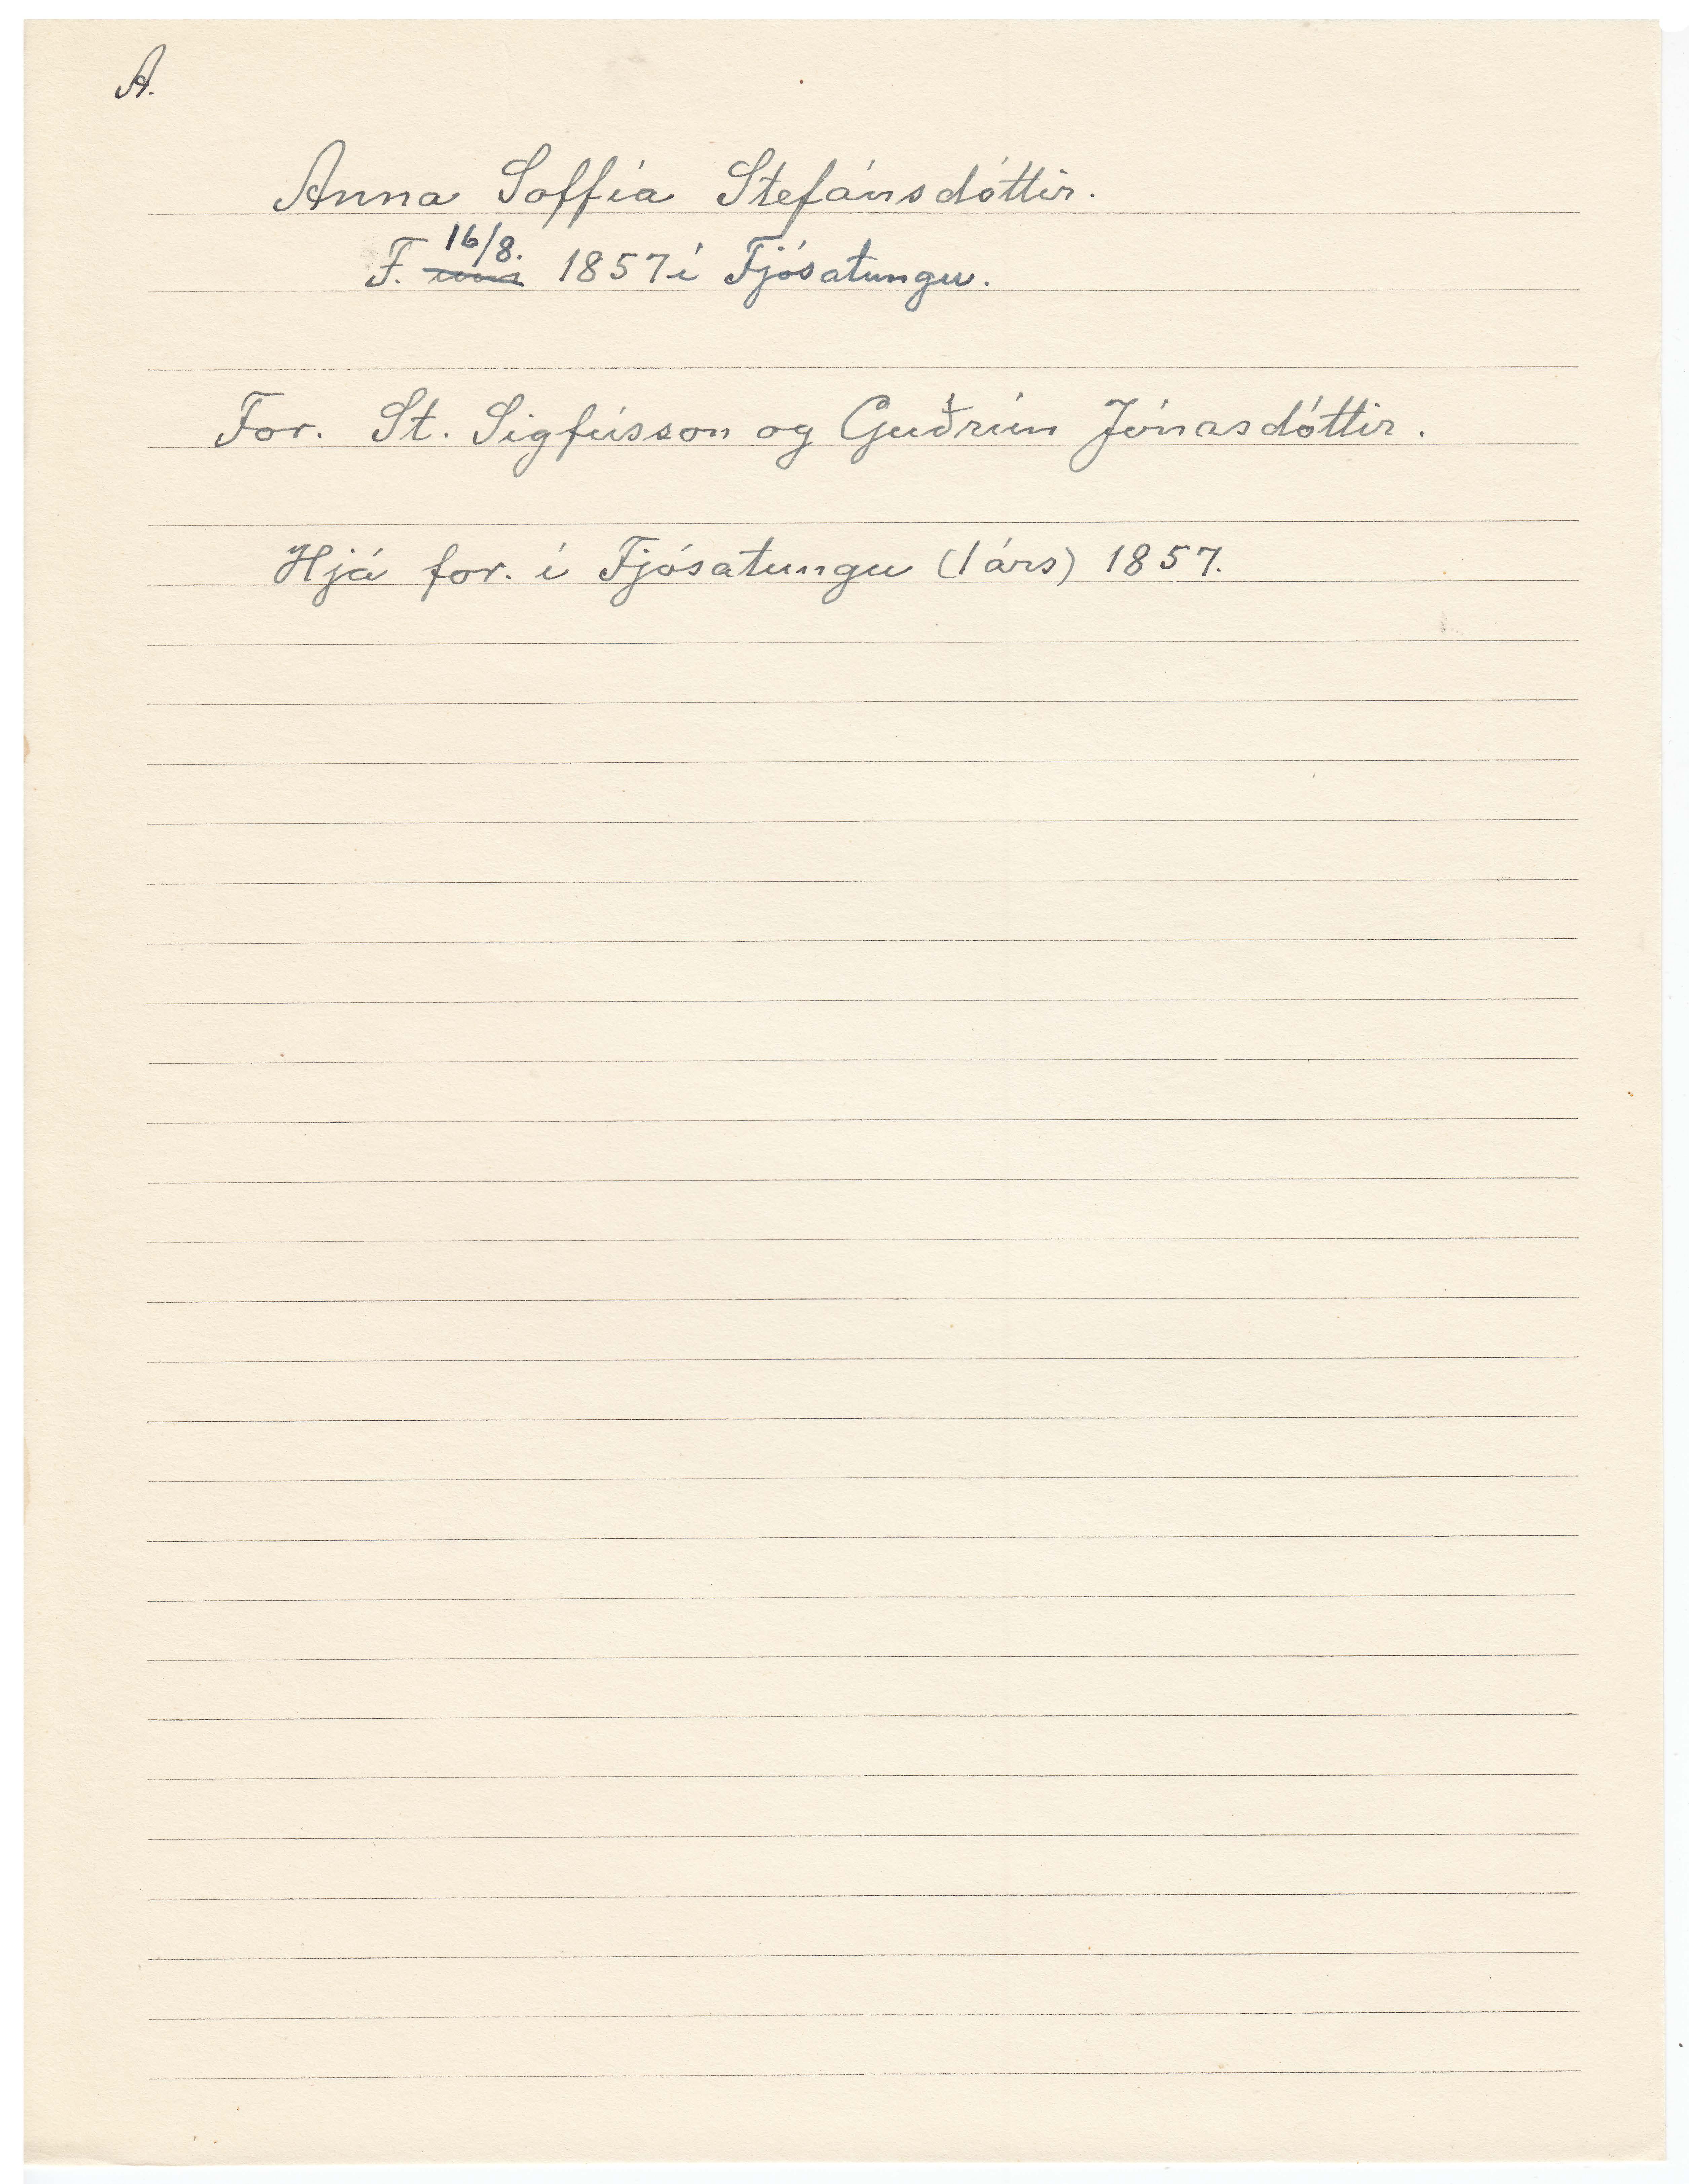 A.
Anna Soffía Stefánsdóttir.
F. 16/8. 1857 í Fjósatungu.
For. St. Sigfússon og Guðrún Jónasdóttir.
Hjá for. í Fjósatungu (1 árs) 1857.